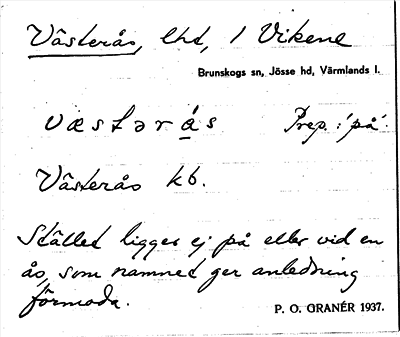 Västerås, lht, 1 Vikene
Brunskogs sn, Jösse hd, Värmlands l.
væstərás Prep.: 'på'
Västerås kb.
Stället ligger ej på eller vid en
ås, som namnet ger anledning
förmoda.
P. O. GRANÉR 1937.